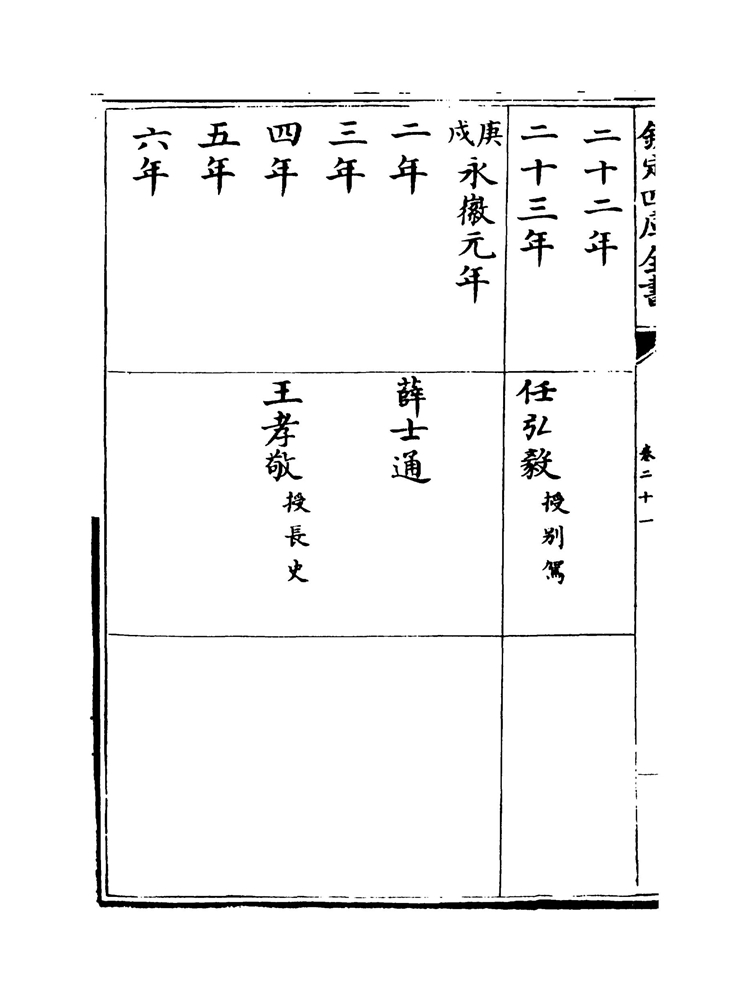 欽定四庫全書
卷二十一
二十二年
二十三年
任弘毅授別駕
庚戌永徽元年
二年
薛士通
三年
四年
王孝敬授長史
五年
六年